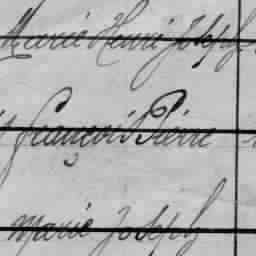 Marie Henri Joseph
françois Pierre
Marie Joseph